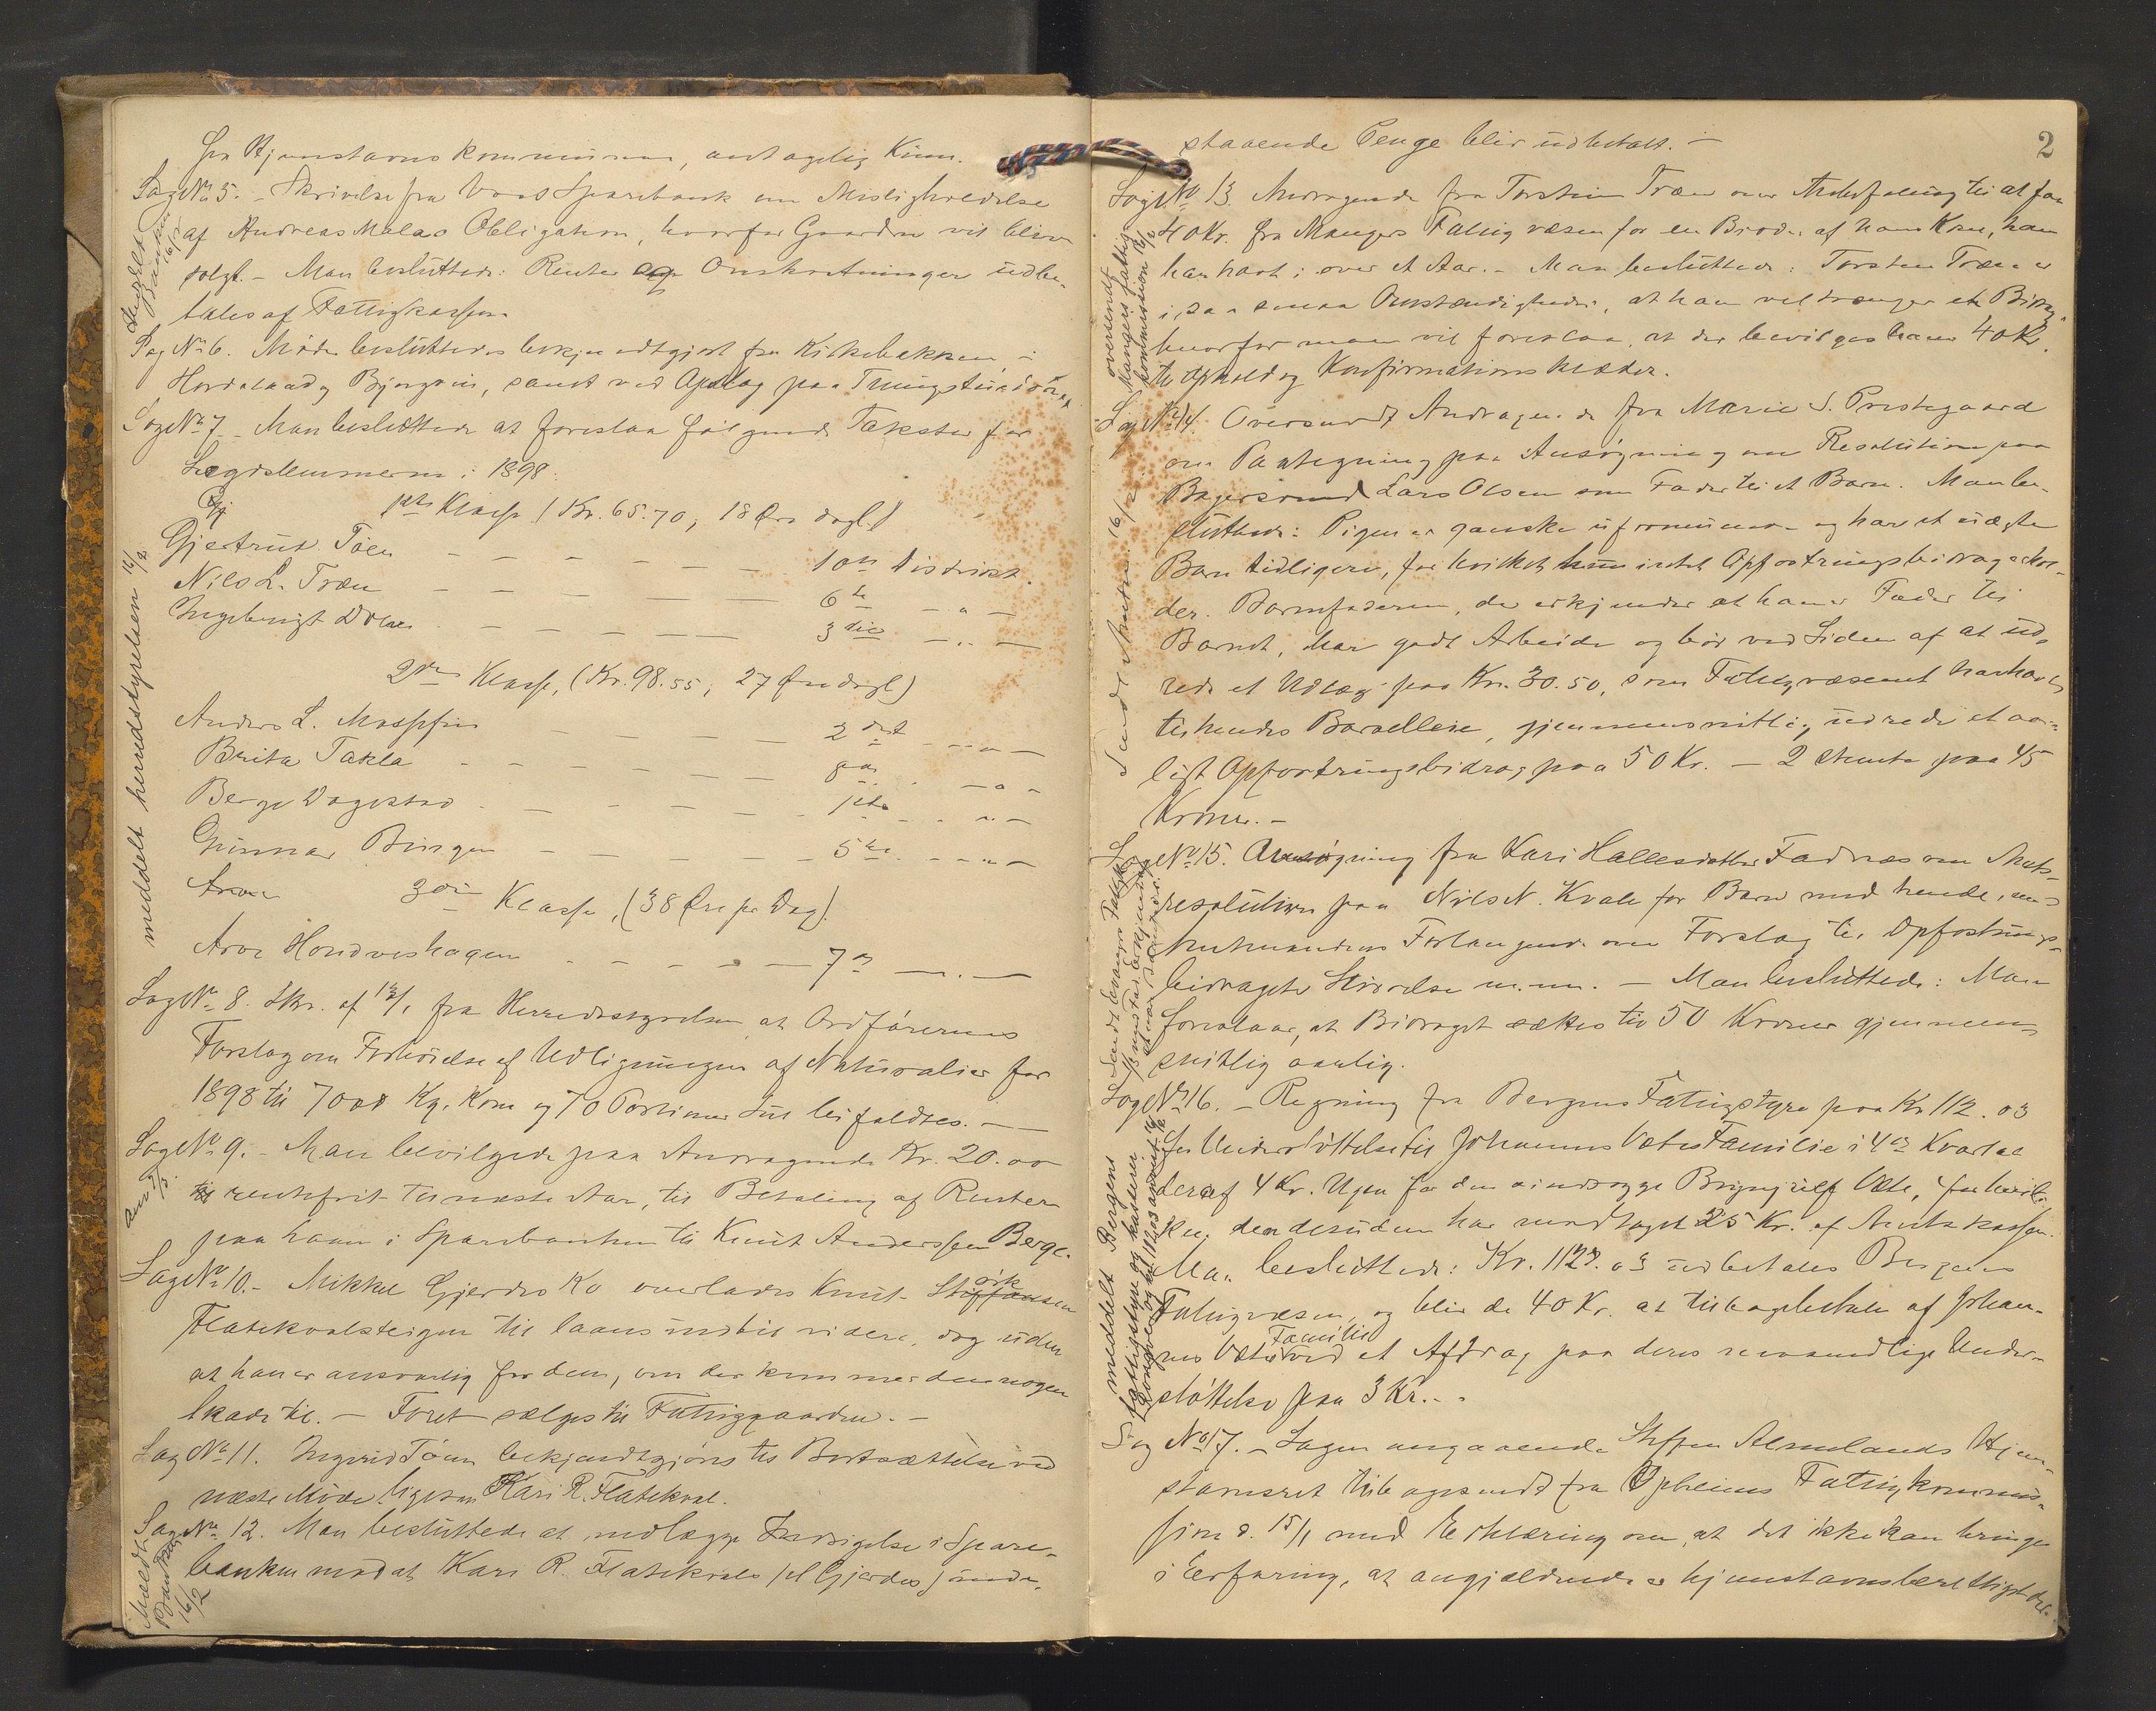 fra Hjemstavnskommunen, antagelig Kinn.
Sag No 5. - Skrivelse fra Voss Sparebank om Misligholdelse
af Andreas Molas Obligation, hvorfor Gaarden vil blive
solgt. - Man besluttede: Renter og Omkostninger udbe-
tales af Fattigkassen.
Sag No 6. Møde besluttedes bekjendtgjort fra Kirkebakken i
Hordaland og Bjørgvin, samt ved Opslag paa
Sag No 7. - Man besluttede at foreslaa følgende Takster for
Lægdslemmerne i 1898:
1ste Klasse (Kr. 65.70, 18 Øre dagl.)
Gjertrud Tøen - - - - - - 10de District.
Nils L. Træn - - - - - - 6te - " -
Ingebrigt Dolve - - - - - - 3die - " -
2den Klasse, (Kr. 98.55, 27 Øre dagl)
Anders L. - - - - - 2det - " -
Brita Takla - - - - - - 8de - " -
Berge Dagestad - - - - - 1ste - " -
Gunnar - - - - - - 5te - " -
3die Klasse, (38 Øre pr Dag).
Arve Hondveshagen - - - - - 7de - " -
Sag No 8. Skr. af 12/1 fra Herredsstyrelsen at Ordførerens
Forslag om Forhøielse af Udligningen af Naturalier for
1898 til 7000 Kg. Korn og 70 Portioner bifaldtes. -
Sag No 9. - Man bevilgede paa Andragende Kr. 20.00
rentefrit til næste Aar, til Betaling af Renter
paa Laan i Sparebanken til Knut Anderssen Berge.
Sag No 10. - Mikkel Gjerdes Ko overlades Knut
Flatekvalsteigen til laans indtil videre, dog uden
at han er ansvarlig for dem, om der kommer dem nogen
Skade til. - Foret sælges til Fattiggaarden. -
Sag No 11. Ingrid Tøen bekjendtgjøres til Bortsættelse ved
næste Møde ligesom Kari R. Flatekval.
Sag No 12. Man besluttede at nedlægge Indsigelse i Spare-
banken mod at Kari R. Flatekvals (el Gjerdes) inde-
Anmeldt Banken 16/2
meddelt herredsstyrelsen 16/2
Meldt Banken 16/2
2
staaende Penge blir udbetalt. -
Sag No 13. Andragende fra Torstein Træn om Anbefaling til at faa
40 Kr. fra Mangers Fattigvæsen for en Broder af hans Kone, han
har havt i over et Aar. - Man besluttede: Torsten Træn er
i saa smaa Omstændigheder, at han vel trænger et Bidrag,
hvorfor man vil foreslaa, at der bevilges ham 40 Kr.
til Ophold og Konfirmationsklæder.
Sag No 14. Oversendt Andragende fra Marie S. Prestegaard
om Paategning paa Ansøgning om Resolution paa
Bagersvend Lars Olsen som Fader til et Barn. Man be-
sluttede: Pigen er ganske uformuende og har et uægte
Barn tidligere, for hvilket hun intet Opfostringsbidrag erhol-
der. Barnefaderen, der erkjender at han er Fader til
Barnet, har godt Arbeide og bør ved Siden af at ud-
rede et Udlæg paa Kr. 30.50, som Fattigvæsenet har havt
til hendes Barselleie, gjennemsnitlig udrede et aar-
ligt Opfostringsbidrag paa 50 Kr. - 2 stemte paa 45
Kroner. -
Sag No 15. Ansøgning fra Kari Hallesdatter Fadnæs om Amts-
resolution paa Nils N. Kvale for Barn med hende, med
Amtmandens Forlangende om Forslag til Opfostrings-
bidragets Størrelse m.m. - Man besluttede: Man
foreslaar, at Bidraget sættes til 50 Kroner gjennem-
snitlig aarlig.
Sag No 16. - Regning fra Bergens Fattigstyre paa Kr 112.03
for Understøttelse til Johannes Væte's Familie i 4de Kvartal
deraf 4 Kr. Ugen for den sindssyge Brynjulf Væte, for
der desuden har modtaget 25 Kr. af Amtskassen.
Man besluttede: Kr. 112.03 udbetales Bergens
Fattigvæsen, og blir de 40 Kr. at tilbagebetale af Johan-
nes Væte's Familie ved et Afdrag paa deres Under-
støttelse paa 3 Kr. -
Sag No 17. - Sagen angaaende Steffen Almelands Hjem-
stavnsret tilbagesendt fra Opheims Fattigkommis-
sion d. 15/1 med Erklæring om, at det ikke kan bringes
i Erfaring, at angjældende er hjemstavnsberettiget der.
oversendt Mangers fattigkommission 16/2
Sendt Amtm. 16/2
meddelt Bergens fattigstyre og kasserer